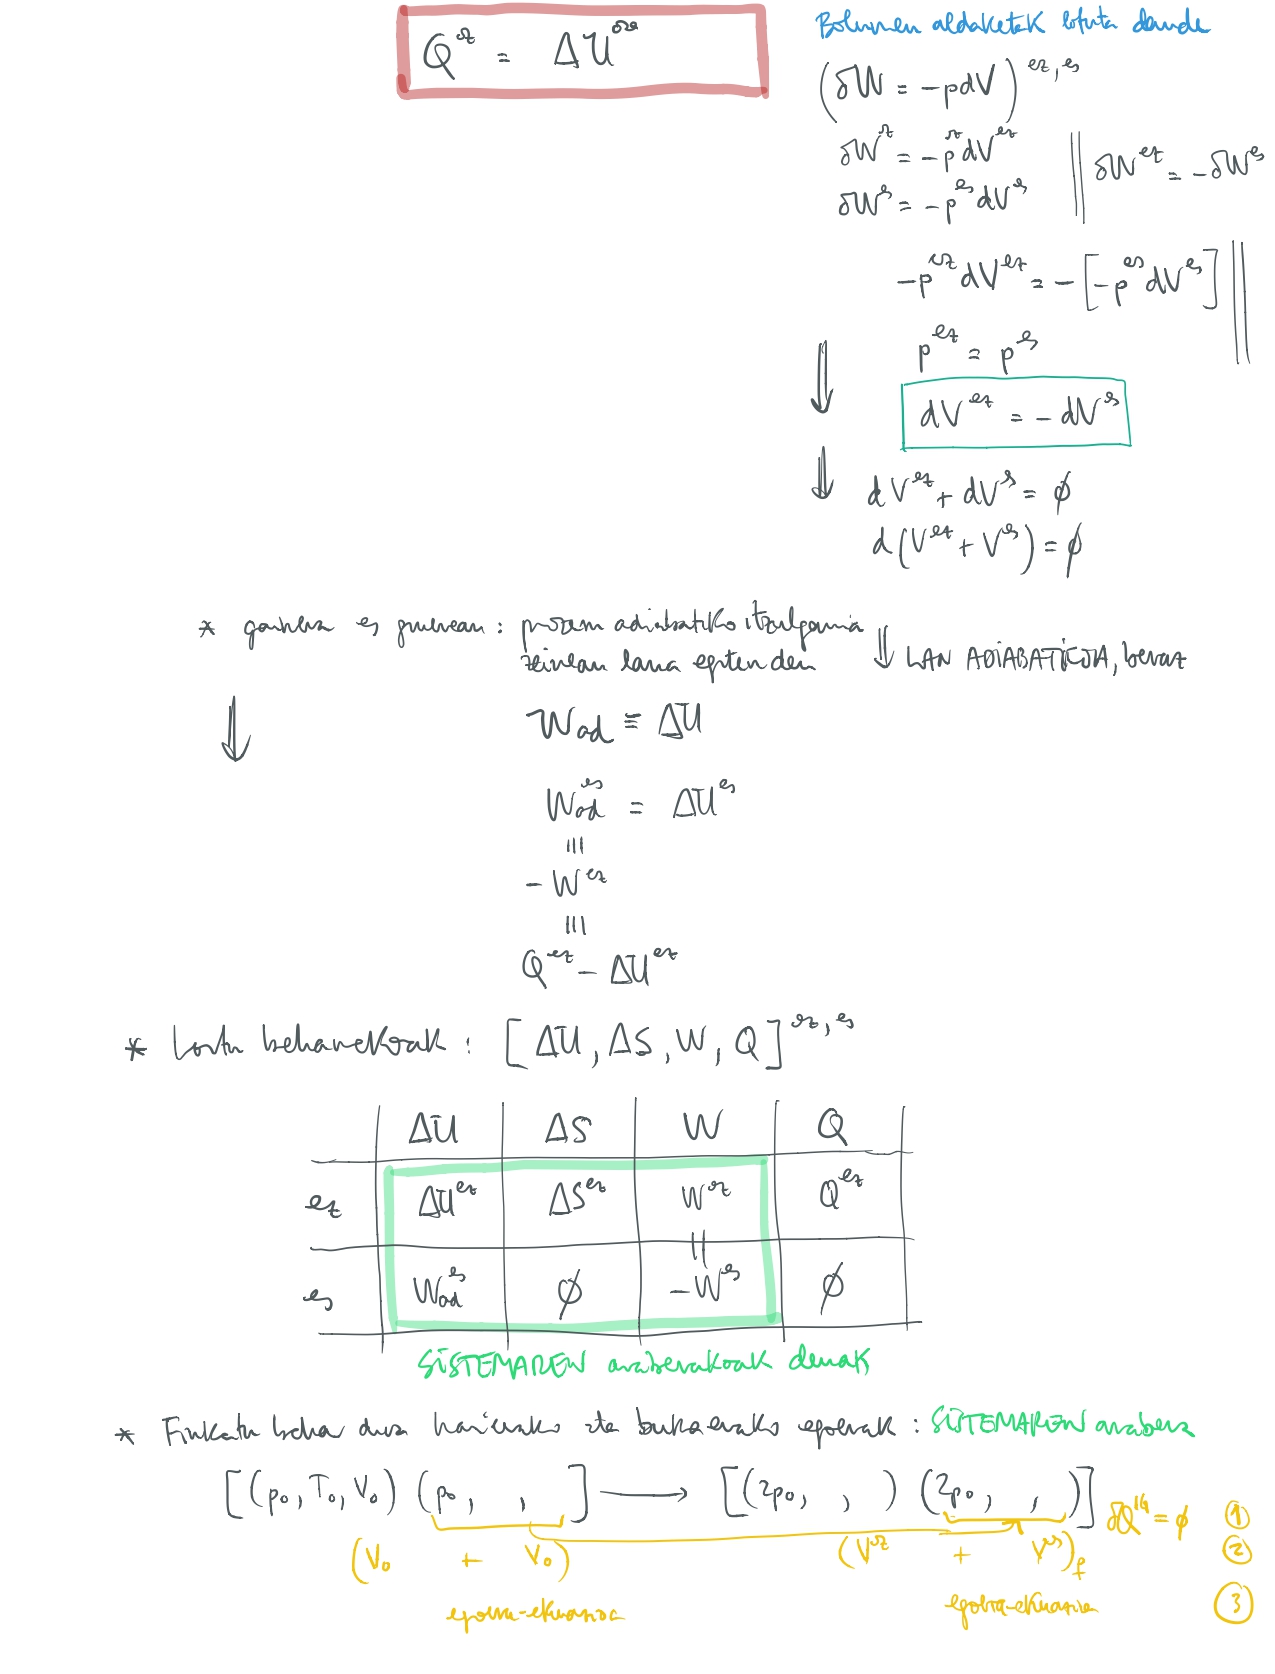 Q^ez = ΔU^ez
Bolumen aldaketak lotuta daude
(δW = -pdV)^ez,es
δW^ez = -p^ez dV^ez
δW^es = -p^es dV^es
δW^ez = -δW^es
-p^ez dV^ez = -[-p^es dV^es]
p^ez = p^es
⇓
dV^ez = -dV^es
⇓ dV^ez + dV^es = ∅
d(V^ez + V^es) = ∅
* gainera es prozesuan : prozesu adiabatiko itzulgarria
zeinean lana egiten den ⇓ LAN ADIABATIKOA, beraz
⇓ W_ad ≡ ΔU
W_ad^es = ΔU^es
|||
-W^ez
|||
Q^ez - ΔU^ez
* Lortu beharrekoak : [ΔU, ΔS, W, Q]^ez,es
ΔU ΔS W Q
ez ΔU^ez ΔS^ez W^ez Q^ez
||
es W_ad^es ∅ -W^es ∅
SISTEMAREN araberakoak denak
* Finkatu behar dira hasierako eta bukaerako egoerak : SISTEMAREN arabera
[(p₀, T₀, V₀) (p₀, , ] ⟶ [(2p₀, , ) (2p₀, , )] δQ^IG = ∅ ①
(V₀ + V₀) (V^ez + V^es)_f ②
egoera-ekuazioa egoera-ekuazioa ③